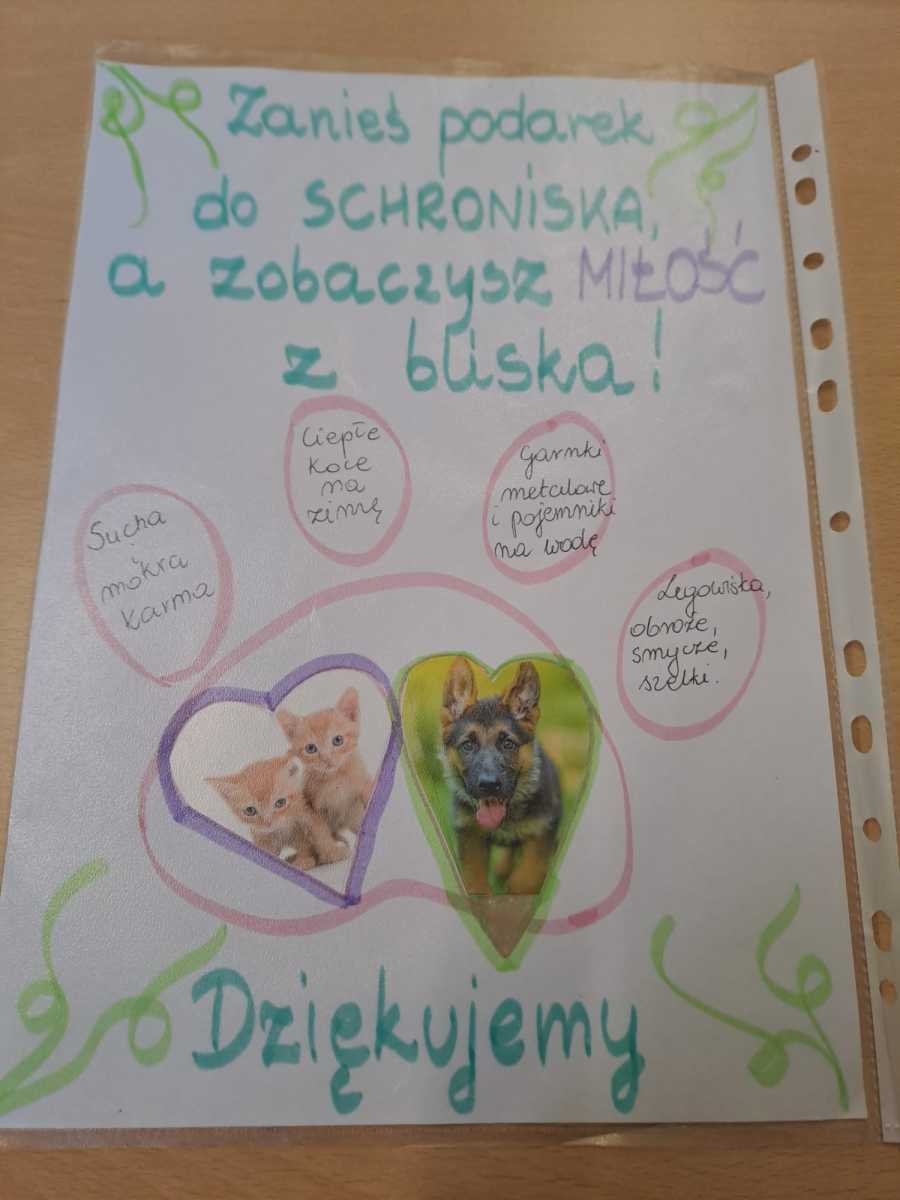 Zanieś podarek
do SCHRONISKA,
a zobaczysz MIŁOŚĆ
z bliska!
Sucha
i
mokra
karma
Ciepłe
koce
na
zimę
Garnki
metalowe
i pojemniki
na wodę
Legowiska,
obroże,
smycze,
szelki.
Dziękujemy